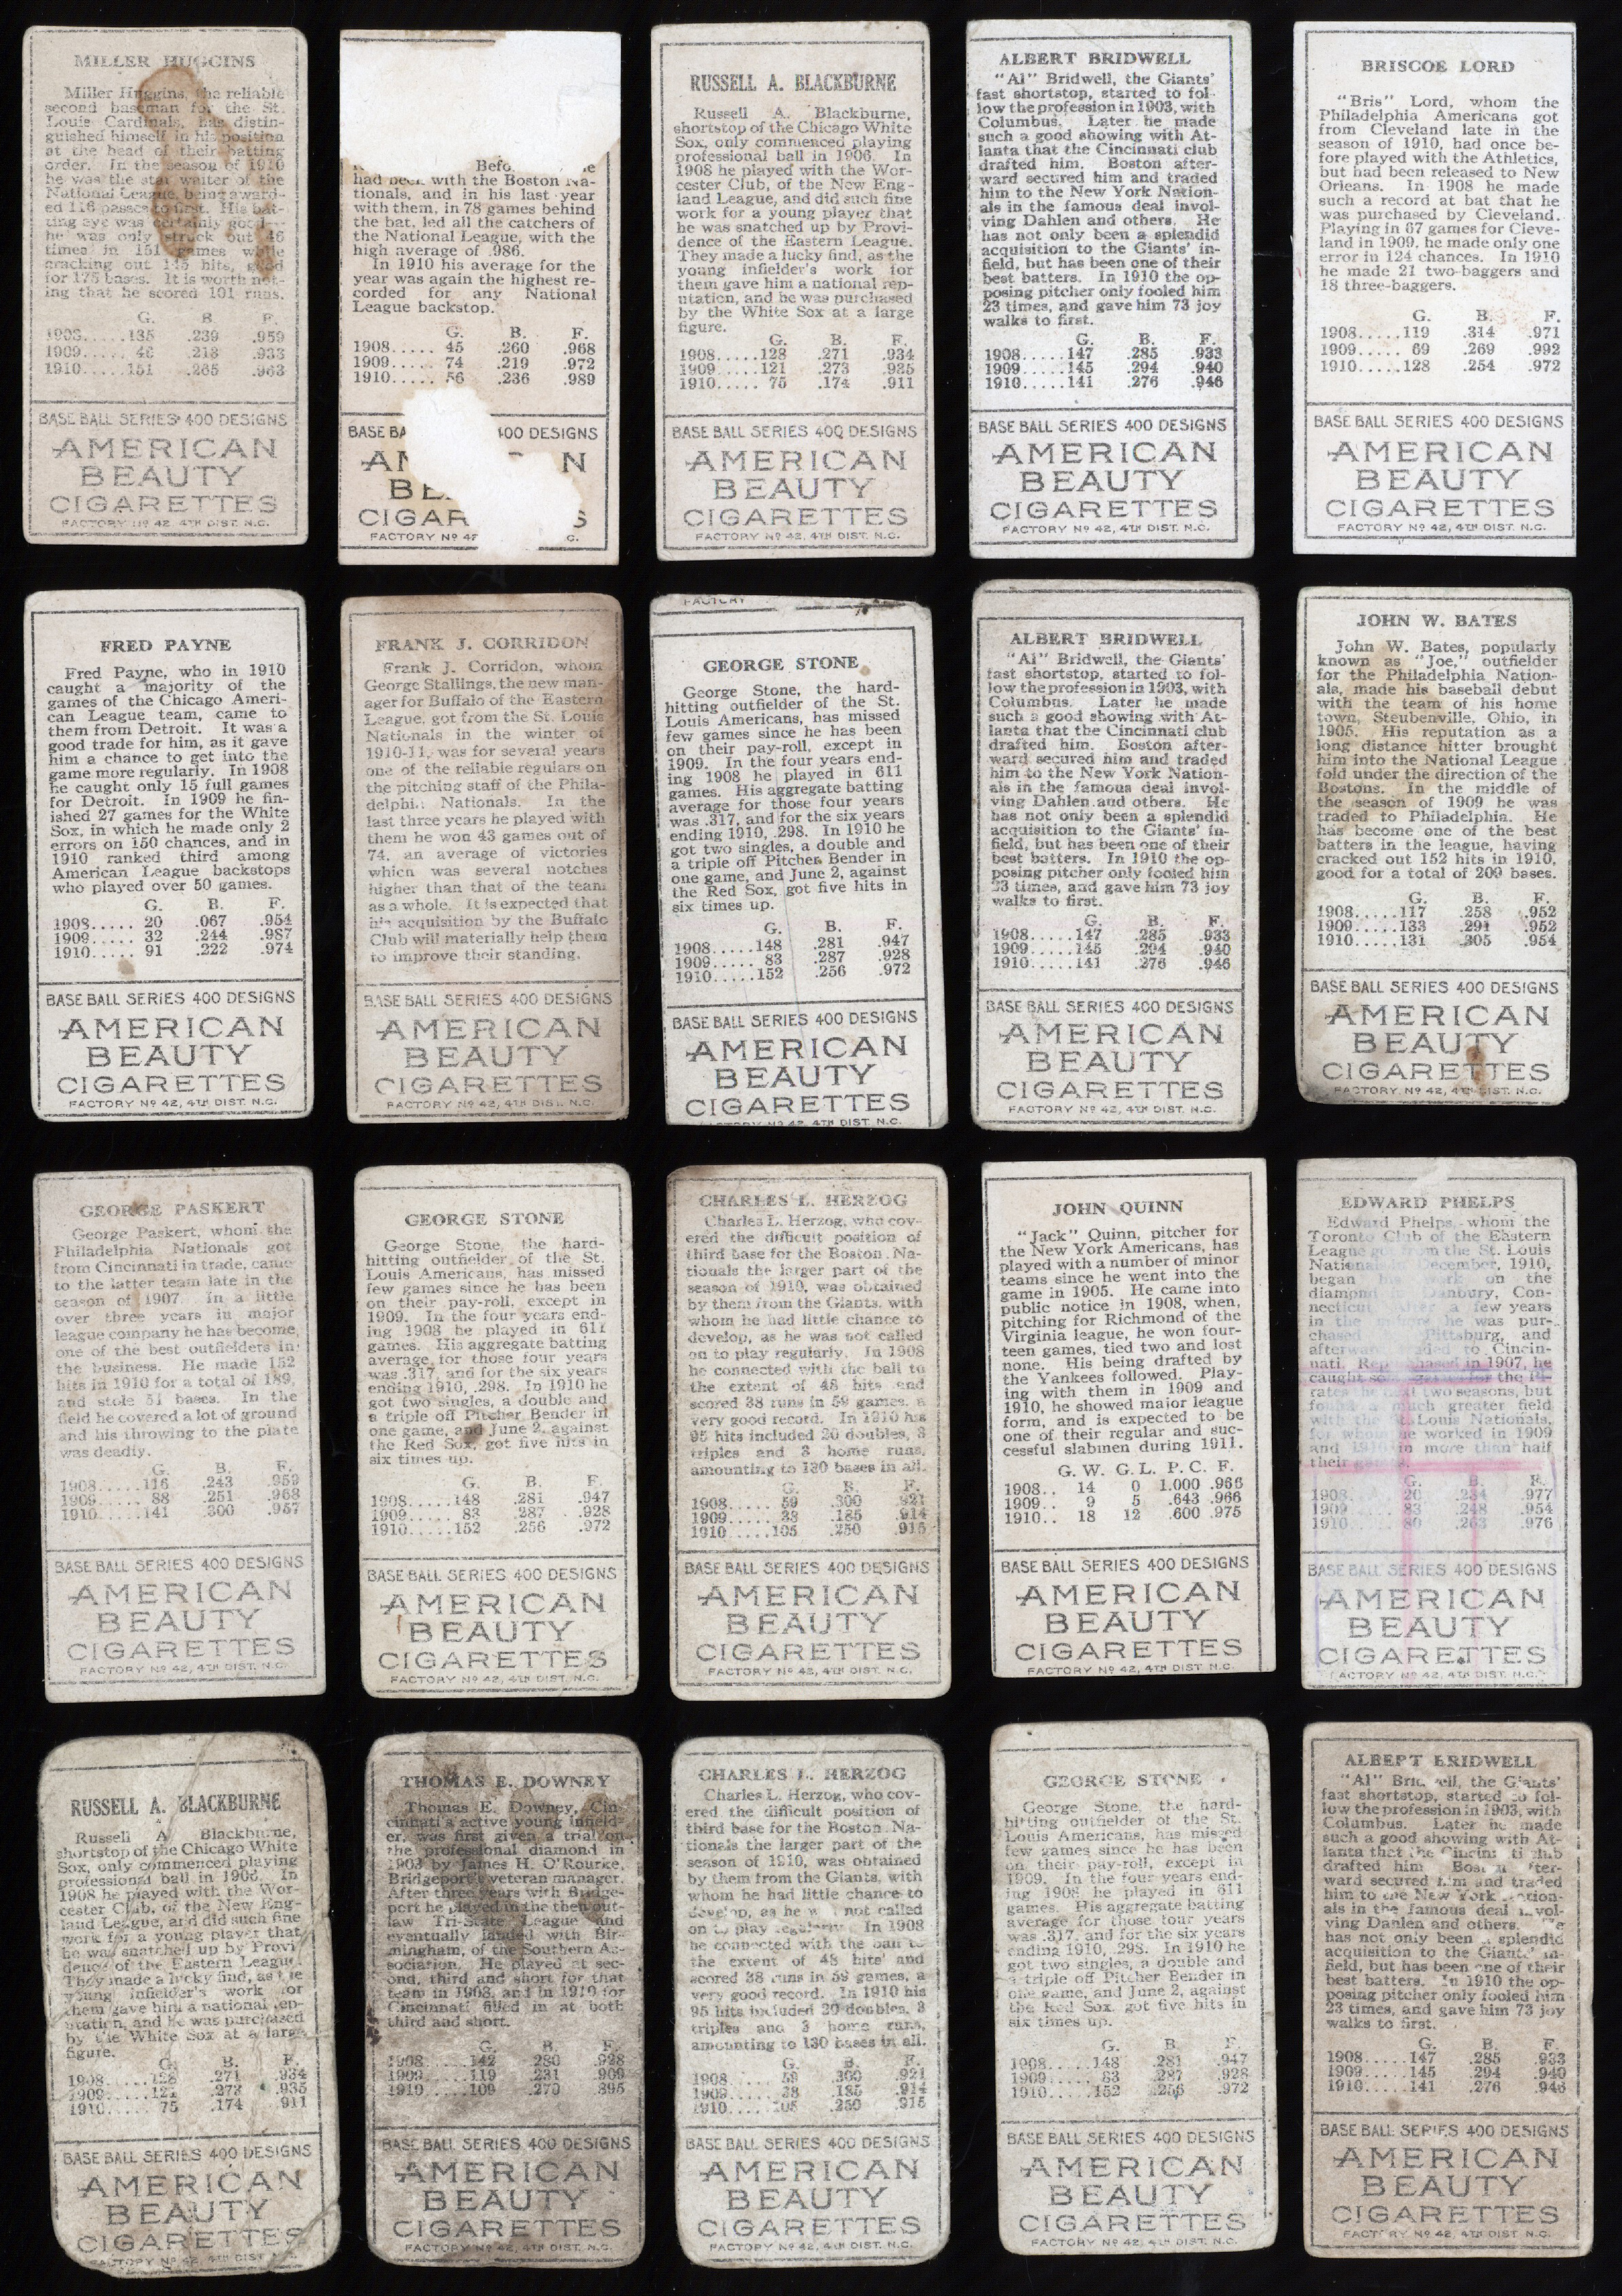 MILLER HUGGINS
Miller Huggins, the reliable
second baseman for the St.
Louis Cardinals, has distin-
guished himself in his position
at the head of their batting
order. In the season of 1910
he was the star waiter of the
National League, being award-
ed 116 passes to first. His bat-
ting eye was certainly good
he was only struck out 46
times in 151 games while
cracking out 145 hits, good
for 175 bases. It is worth not-
ing that he scored 101 runs.
G. B. F.
1908.....135 .239 .959
1909..... 46 .213 .933
1910.....151 .265 .963
BASE BALL SERIES 400 DESIGNS
AMERICAN
BEAUTY
CIGARETTES
FACTORY Nº 42, 4TH DIST. N.C.
Befo
had been with the Boston Na-
tionals, and in his last year
with them, in 78 games behind
the bat, led all the catchers of
the National League, with the
high average of .986.
In 1910 his average for the
year was again the highest re-
corded for any National
League backstop.
G. B. F.
1908..... 45 .260 .968
1909..... 74 .219 .972
1910..... 56 .236 .989
BASE BA 400 DESIGNS
AM N
BE
CIGAR S
FACTORY Nº 42 C.
RUSSELL A. BLACKBURNE
Russell A. Blackburne,
shortstop of the Chicago White
Sox, only commenced playing
professional ball in 1906. In
1908 he played with the Wor-
cester Club, of the New Eng-
land League, and did such fine
work for a young player that
he was snatched up by Provi-
dence of the Eastern League.
They made a lucky find, as the
young infielder's work for
them gave him a national rep-
utation, and he was purchased
by the White Sox at a large
figure.
G. B. F.
1908.....128 .271 .934
1909.....121 .273 .935
1910..... 75 .174 .911
BASE BALL SERIES 400 DESIGNS
AMERICAN
BEAUTY
CIGARETTES
FACTORY Nº 42, 4TH DIST. N.C.
ALBERT BRIDWELL
"Al" Bridwell, the Giants'
fast shortstop, started to fol-
low the profession in 1903, with
Columbus. Later he made
such a good showing with At-
lanta that the Cincinnati club
drafted him. Boston after-
ward secured him and traded
him to the New York Nation-
als in the famous deal invol-
ving Dahlen and others. He
has not only been a splendid
acquisition to the Giants' in-
field, but has been one of their
best batters. In 1910 the op-
posing pitcher only fooled him
23 times, and gave him 73 joy
walks to first.
G. B. F.
1908.....147 .285 .933
1909.....145 .294 .940
1910.....141 .276 .946
BASE BALL SERIES 400 DESIGNS
AMERICAN
BEAUTY
CIGARETTES
FACTORY Nº 42, 4TH DIST. N.C.
BRISCOE LORD
"Bris" Lord, whom the
Philadelphia Americans got
from Cleveland late in the
season of 1910, had once be-
fore played with the Athletics,
but had been released to New
Orleans. In 1908 he made
such a record at bat that he
was purchased by Cleveland.
Playing in 67 games for Cleve-
land in 1909, he made only one
error in 124 chances. In 1910
he made 21 two-baggers and
18 three-baggers.
G. B. F.
1908.....119 .314 .971
1909..... 69 .269 .992
1910.....128 .254 .972
BASE BALL SERIES 400 DESIGNS
AMERICAN
BEAUTY
CIGARETTES
FACTORY Nº 42, 4TH DIST. N.C.
FRED PAYNE
Fred Payne, who in 1910
caught a majority of the
games of the Chicago Ameri-
can League team, came to
them from Detroit. It was a
good trade for him, as it gave
him a chance to get into the
game more regularly. In 1908
he caught only 15 full games
for Detroit. In 1909 he fin-
ished 27 games for the White
Sox, in which he made only 2
errors on 150 chances, and in
1910 ranked third among
American League backstops
who played over 50 games.
G. B. F.
1908..... 20 .067 .954
1909..... 32 .244 .987
1910..... 91 .222 .974
BASE BALL SERIES 400 DESIGNS
AMERICAN
BEAUTY
CIGARETTES
FACTORY Nº 42, 4TH DIST. N.C.
FRANK J. CORRIDON
Frank J. Corridon, whom
George Stallings, the new man-
ager for Buffalo of the Eastern
League, got from the St. Louis
Nationals in the winter of
1910-11, was for several years
one of the reliable regulars on
the pitching staff of the Phila-
delphia Nationals. In the
last three years he played with
them he won 43 games out of
74, an average of victories
which was several notches
higher than that of the team
as a whole. It is expected that
his acquisition by the Buffalo
Club will materially help them
to improve their standing.
BASE BALL SERIES 400 DESIGNS
AMERICAN
BEAUTY
CIGARETTES
FACTORY Nº 42, 4TH DIST. N.C.
FACTORY
GEORGE STONE
George Stone, the hard-
hitting outfielder of the St.
Louis Americans, has missed
few games since he has been
on their pay-roll, except in
1909. In the four years end-
ing 1908 he played in 611
games. His aggregate batting
average for those four years
was .317, and for the six years
ending 1910, .298. In 1910 he
got two singles, a double and
a triple off Pitcher Bender in
one game, and June 2, against
the Red Sox, got five hits in
six times up.
G. B. F.
1908.....148 .281 .947
1909..... 83 .287 .928
1910.....152 .256 .972
BASE BALL SERIES 400 DESIGNS
AMERICAN
BEAUTY
CIGARETTES
FACTORY Nº 42, 4TH DIST. N.C.
ALBERT BRIDWELL
"Al" Bridwell, the Giants'
fast shortstop, started to fol-
low the profession in 1903, with
Columbus. Later he made
such a good showing with At-
lanta that the Cincinnati club
drafted him. Boston after-
ward secured him and traded
him to the New York Nation-
als in the famous deal invol-
ving Dahlen and others. He
has not only been a splendid
acquisition to the Giants' in-
field, but has been one of their
best batters. In 1910 the op-
posing pitcher only fooled him
23 times, and gave him 73 joy
walks to first.
G. B. F.
1908.....147 .285 .933
1909.....145 .294 .940
1910.....141 .276 .946
BASE BALL SERIES 400 DESIGNS
AMERICAN
BEAUTY
CIGARETTES
FACTORY Nº 42, 4TH DIST. N.C.
JOHN W. BATES
John W. Bates, popularly
known as "Joe," outfielder
for the Philadelphia Nation-
als, made his baseball debut
with the team of his home
town, Steubenville, Ohio, in
1905. His reputation as a
long distance hitter brought
him into the National League
fold under the direction of the
Bostons. In the middle of
the season of 1909 he was
traded to Philadelphia. He
has become one of the best
batters in the league, having
cracked out 152 hits in 1910,
good for a total of 209 bases.
G. B. F.
1908.....117 .258 .952
1909.....133 .291 .952
1910.....131 .305 .954
BASE BALL SERIES 400 DESIGNS
AMERICAN
BEAUTY
CIGARETTES
FACTORY Nº 42, 4TH DIST. N.C.
GEORGE PASKERT
George Paskert, whom the
Philadelphia Nationals got
from Cincinnati in trade, came
to the latter team late in the
season of 1907. In a little
over three years in major
league company he has become
one of the best outfielders in
the business. He made 152
hits in 1910 for a total of 189,
and stole 51 bases. In the
field he covered a lot of ground
and his throwing to the plate
was deadly.
G. B. F.
1908.....116 .243 .959
1909..... 88 .251 .968
1910.....141 .300 .957
BASE BALL SERIES 400 DESIGNS
AMERICAN
BEAUTY
CIGARETTES
FACTORY Nº 42, 4TH DIST. N.C.
GEORGE STONE
George Stone, the hard-
hitting outfielder of the St.
Louis Americans, has missed
few games since he has been
on their pay-roll, except in
1909. In the four years end-
ing 1908 he played in 611
games. His aggregate batting
average for those four years
was .317, and for the six years
ending 1910, .298. In 1910 he
got two singles, a double and
a triple off Pitcher Bender in
one game, and June 2, against
the Red Sox, got five hits in
six times up.
G. B. F.
1908.....148 .281 .947
1909..... 83 .287 .928
1910.....152 .256 .972
BASE BALL SERIES 400 DESIGNS
AMERICAN
BEAUTY
CIGARETTES
FACTORY Nº 42, 4TH DIST. N.C.
CHARLES L. HERZOG
Charles L. Herzog, who cov-
ered the difficult position of
third base for the Boston Na-
tionals the larger part of the
season of 1910, was obtained
by them from the Giants, with
whom he had little chance to
develop, as he was not called
on to play regularly. In 1908
he connected with the ball to
the extent of 48 hits and
scored 38 runs in 59 games, a
very good record. In 1910 his
95 hits included 20 doubles, 3
triples and 3 home runs,
amounting to 130 bases in all.
G. B. F.
1908..... 59 .300 .921
1909..... 38 .185 .914
1910.....105 .250 .915
BASE BALL SERIES 400 DESIGNS
AMERICAN
BEAUTY
CIGARETTES
FACTORY Nº 42, 4TH DIST. N.C.
JOHN QUINN
"Jack" Quinn, pitcher for
the New York Americans, has
played with a number of minor
teams since he went into the
game in 1905. He came into
public notice in 1908, when,
pitching for Richmond of the
Virginia league, he won four-
teen games, tied two and lost
none. His being drafted by
the Yankees followed. Play-
ing with them in 1909 and
1910, he showed major league
form, and is expected to be
one of their regular and suc-
cessful slabmen during 1911.
G. W. G. L. P. C. F.
1908.. 14 0 1.000 .966
1909.. 9 5 .643 .966
1910.. 18 12 .600 .975
BASE BALL SERIES 400 DESIGNS
AMERICAN
BEAUTY
CIGARETTES
FACTORY Nº 42, 4TH DIST. N.C.
EDWARD PHELPS
Edward Phelps, whom the
Toronto Club of the Eastern
League got from the St. Louis
Nationals in December, 1910,
began his work on the
diamond in Danbury, Con-
necticut. After a few years
in the he was pur-
chased Pittsburg, and
afterward traded to Cincin-
nati. Repurchased in 1907, he
caught for the Pi-
rates the next two seasons, but
found a much greater field
with the St. Louis Nationals,
for whom he worked in 1909
and 1910 in more than half
their games.
G. B. F.
1908..... 20 .234 .977
1909..... 83 .248 .954
1910..... 80 .263 .976
BASE BALL SERIES 400 DESIGNS
AMERICAN
BEAUTY
CIGARETTES
FACTORY Nº 42, 4TH DIST. N.C.
RUSSELL A. BLACKBURNE
Russell A. Blackburne,
shortstop of the Chicago White
Sox, only commenced playing
professional ball in 1906. In
1908 he played with the Wor-
cester Club, of the New Eng-
land League, and did such fine
work for a young player that
he was snatched up by Provi-
dence of the Eastern League.
They made a lucky find, as the
young infielder's work for
them gave him a national rep-
utation, and he was purchased
by the White Sox at a large
figure.
G. B. F.
1908.....128 .271 .934
1909.....121 .273 .935
1910..... 75 .174 .911
BASE BALL SERIES 400 DESIGNS
AMERICAN
BEAUTY
CIGARETTES
FACTORY Nº 42, 4TH DIST
THOMAS E. DOWNEY
Thomas E. Downey, Cin-
cinnati's active young infield-
er, was first given a trial on
the professional diamond in
1903 by James H. O'Rourke,
Bridgeport's veteran manager.
After three years with Bridge-
port he played in the then out-
law Tri-State League and
eventually landed with Bir-
mingham, of the Southern As-
sociation. He played at sec-
ond, third and short for that
team in 1908, and in 1910 for
Cincinnati filled in at both
third and short.
G. B. F.
1908.....142 .280 .928
1909.....119 .231 .909
1910.....109 .270 .895
BASE BALL SERIES 400 DESIGNS
AMERICAN
BEAUTY
CIGARETTES
FACTORY Nº 42, 4TH DIST. N.C.
CHARLES L. HERZOG
Charles L. Herzog, who cov-
ered the difficult position of
third base for the Boston Na-
tionals the larger part of the
season of 1910, was obtained
by them from the Giants, with
whom he had little chance to
develop, as he w not called
on to play regularly. In 1908
he connected with the ball to
the extent of 48 hits and
scored 38 runs in 59 games, a
very good record. In 1910 his
95 hits included 20 doubles, 3
triples and 3 home runs,
amounting to 130 bases in all.
G. B. F.
1908..... 59 .300 .921
1909..... 38 .185 .914
1910.....105 .250 .915
BASE BALL SERIES 400 DESIGNS
AMERICAN
BEAUTY
CIGARETTES
FACTORY Nº 42, 4TH DIST. N.C.
GEORGE STONE
George Stone, the hard-
hitting outfielder of the St.
Louis Americans, has missed
few games since he has been
on their pay-roll, except in
1909. In the four years end-
ing 1908 he played in 611
games. His aggregate batting
average for those four years
was .317, and for the six years
ending 1910, .298. In 1910 he
got two singles, a double and
a triple off Pitcher Bender in
one game, and June 2, against
the Red Sox, got five hits in
six times up.
G. B. F.
1908.....148 .281 .947
1909..... 83 .287 .928
1910.....152 .256 .972
BASE BALL SERIES 400 DESIGNS
AMERICAN
BEAUTY
CIGARETTES
FACTORY Nº 42, 4TH DIST. N.C.
ALBERT BRIDWELL
"Al" Bridwell, the Giants'
fast shortstop, started to fol-
low the profession in 1903, with
Columbus. Later he made
such a good showing with At-
lanta that the Cincinnati club
drafted him. Boston after-
ward secured him and traded
him to the New York Nation-
als in the famous deal invol-
ving Dahlen and others. He
has not only been a splendid
acquisition to the Giants' in-
field, but has been one of their
best batters. In 1910 the op-
posing pitcher only fooled him
23 times, and gave him 73 joy
walks to first.
G. B. F.
1908.....147 .285 .933
1909.....145 .294 .940
1910.....141 .276 .946
BASE BALL SERIES 400 DESIGNS
AMERICAN
BEAUTY
CIGARETTES
FACTORY Nº 42, 4TH DIST. N.C.